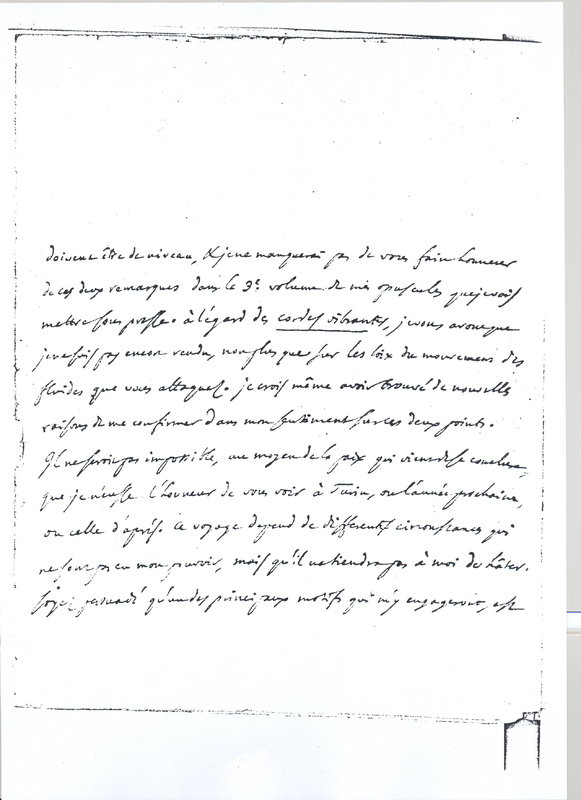 doivent être de niveau, & je ne manquerai pas de vous faire honneur
de ces deux remarques dans le 3.e volume de mes opuscules que je vais
mettre sous presse. à l'égard des cordes vibrantes, je vous avoue que
je ne suis pas encor rendu, non plus que sur les loix du mouvement des
fluides que vous attaquez. je crois même avoir trouvé de nouvelles
raisons de me confirmer dans mon sentiment sur ces deux points.
Il ne seroit pas impossible, au moyen de la paix qui vient de se conclure,
que je n'eusse l'honneur de vous voir à Turin, ou l'année prochaine,
ou celle d'après. Ce voyage depend de differentes circonstances qui
ne sont pas en mon pouvoir, mais qu'il ne tiendra pas à moi de hâter.
Soyez persuadé qu'un des principaux motifs qui m'y engageront, est